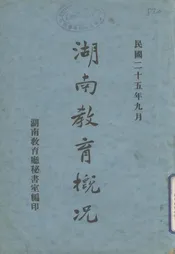 民國二十五年九月
湖南教育概况
湖南教育廳秘書室編印